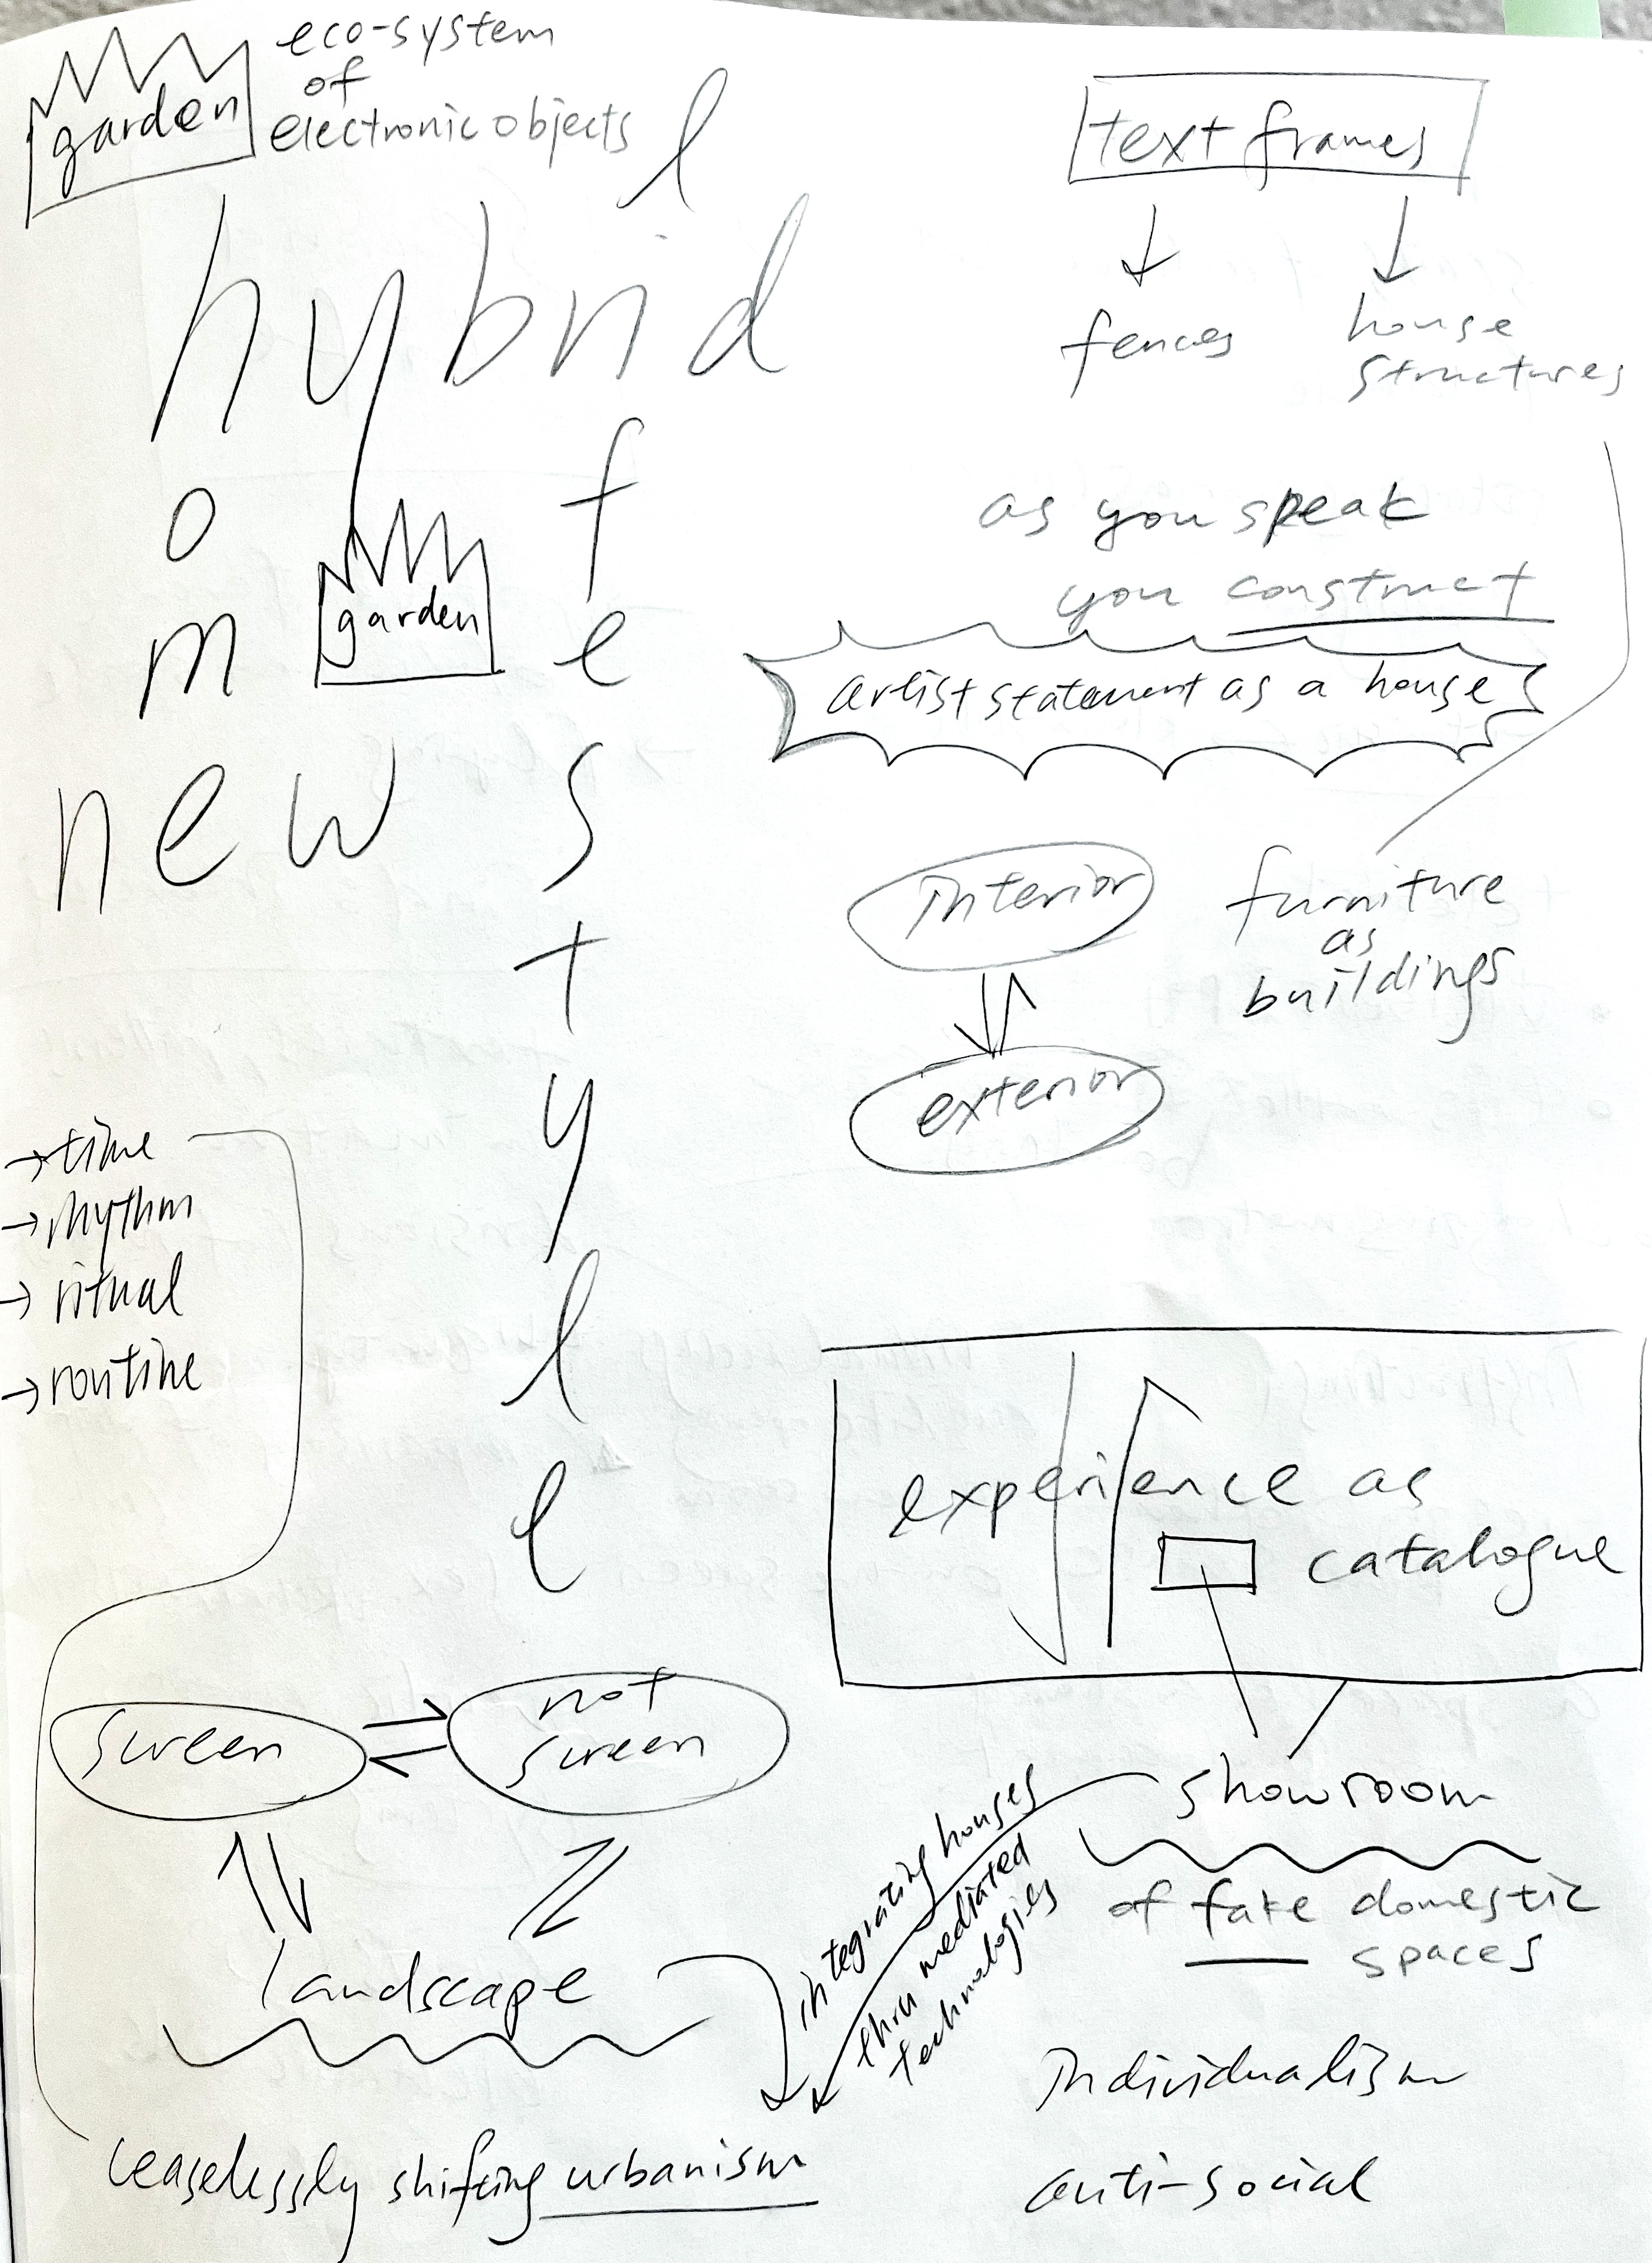 garden
eco-system
of
electronic objects
l
hybrid
o
m
new
garden
f
e
s
t
y
l
e
text frames
fences
house
structures
as you speak
you construct
artist statement as a house
interior
exterior
furniture
as
buildings
→time
→rhythm
→ritual
→routine
experience as
catalogue
screen
not
screen
landscape
integrating houses
thru mediated
technologies
showroom
of fake domestic
spaces
individualism
anti-social
ceaselessly shifting urbanism